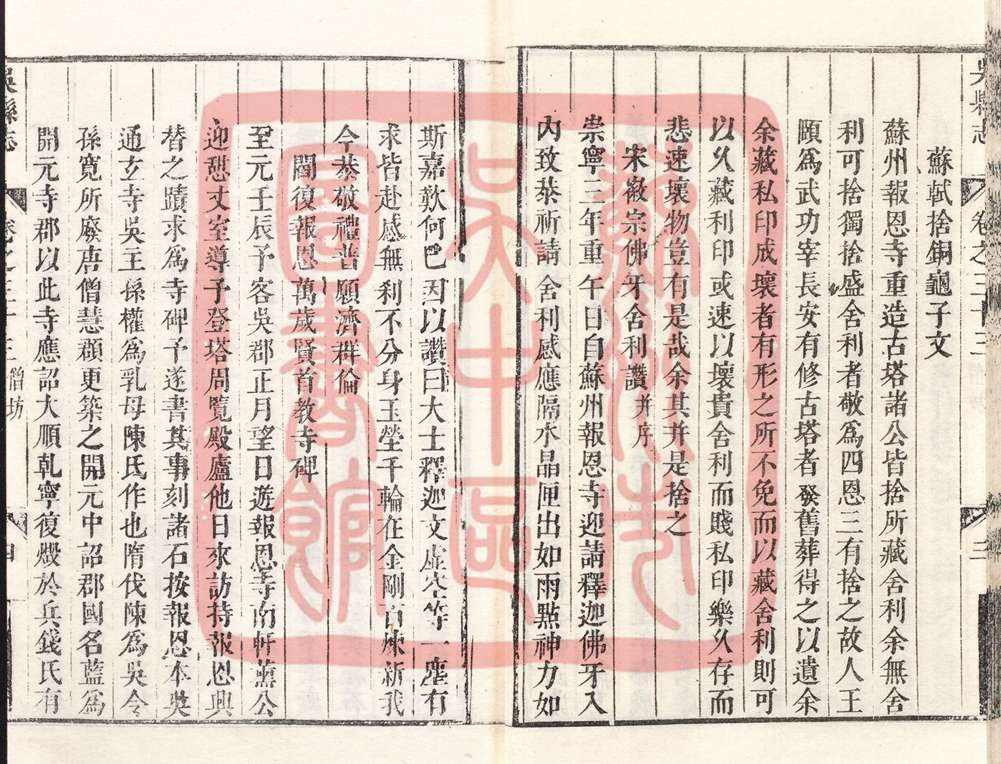 吳縣志 卷之三十三 三
蘇軾捨銅龜子文
蘇州報恩寺重造古塔諸公皆捨所藏舍利余無舍
利可捨獨捨盛舍利者敬為四恩三有捨之故人王
頤為武功宰長安有修古塔者發舊葬得之以遺余
余藏私印成壞者有形之所不免而以藏舍利則可
以久藏私印或速以壞貴舍利而賤私印樂久存而
悲速壞物豈有是哉余其并是捨之
宋徽宗佛牙舍利讚并序
崇寧三年重午日自蘇州報恩寺迎請釋迦佛牙入
內致恭祈請舍利感應隔水晶匣出如雨點神力如
斯嘉歎何已因以讚曰大士釋迦文虛空等一塵有
求皆赴感無利不分身玉瑩千輪在金剛百煉新我
今恭敬禮普願濟群倫
閻復報恩萬歲賢首教寺碑
至元壬辰予客吳郡正月望日遊報恩寺南軒薰公
迎憩丈室導予登塔周覽殿廬他日來訪持報恩興
替之蹟求為寺碑予遂書其事刻諸石按報恩本吳
通玄寺吳王孫權為乳母陳氏作也隋伐陳為吳令
孫寬所廢唐僧慧頵更築之開元中詔郡國名藍為
開元寺郡以此寺應詔大順乹寧復燬於兵錢氏有
吳縣志 卷之三十三 僧坊 四